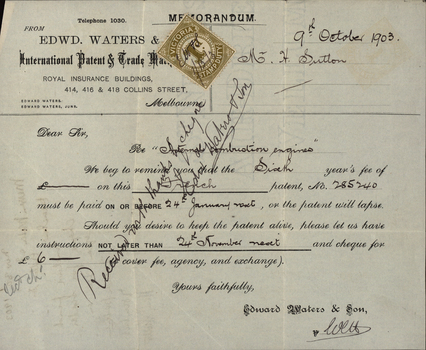 Telephone 1030.
MEMORANDUM.
FROM
EDWD. WATERS &
International Patent & Trade Mar
ROYAL INSURANCE BUILDINGS,
414, 416 & 418 COLLINS STREET,
EDWARD WATERS.
EDWARD WATERS, JUNR.
Melbourne
9th October 1903.
Mr. H Sutton
VICTORIA
STAMP DUTY
Dear Sir,
Re "Internal combustion engines"
We beg to remind you that the Sixth year's fee of
£ on this French patent, No. 285240
must be paid ON OR BEFORE 24th January next, or the patent will lapse.
Should you desire to keep the patent alive, please let us have
instructions NOT LATER THAN 24th November next and cheque for
£ 6 (to cover fee, agency, and exchange).
Received with thanks cheque
Edwd Waters & Son
Yours faithfully,
Edward Waters & Son,